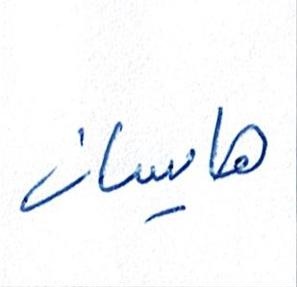 هایسان